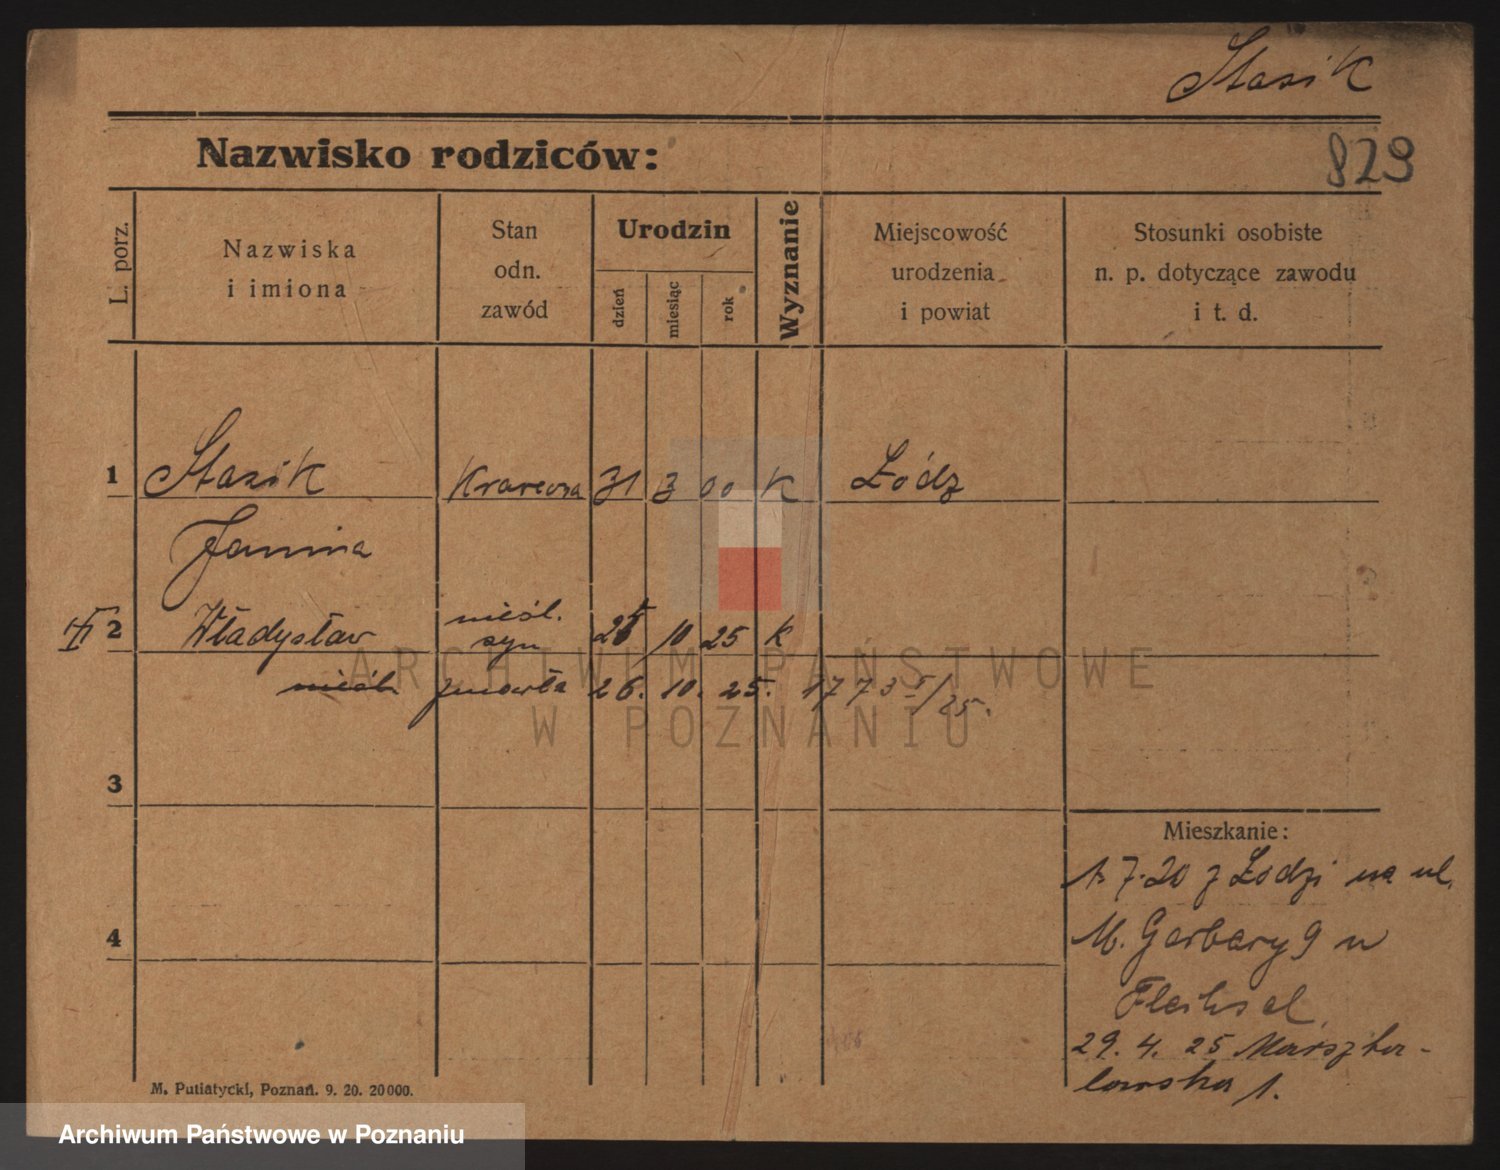 Stasik
Nazwisko rodziców:
829
L. porz.
Nazwiska
i imiona
Stan
odn.
zawód
Urodzin
dzień
miesiąc
rok
Wyznanie
Miejscowość
urodzenia
i powiat
Stosunki osobiste
n. p. dotyczące zawodu
i t. d.
1 Stasik Krawcowa 31 3 00 K Łódz
Janina
2 Władysław nieśl. syn 10 25 K
nieśl. zmarła 26. 10. 25.
3
4
Mieszkanie:
1. 7. 20 z Łodzi na ul.
M. Garbary 9 u
29. 4. 25 Marszka-
lowska 1.
M. Putiatycki, Poznań. 9. 20. 20000.
ARCHIWUM PAŃSTWOWE
W POZNANIU
Archiwum Państwowe w Poznaniu